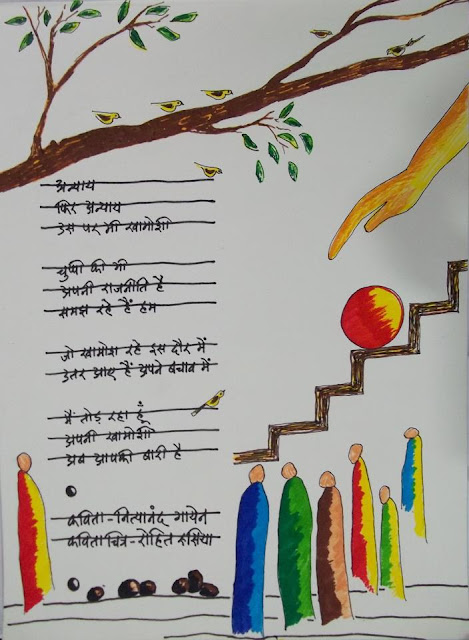 अन्याय
फिर अन्याय
उस पर भी खामोशी
चुप्पी की भी
अपनी राजनीति है
समझ रहे हैं हम
जो खामोश रहे इस दौर में
उतर आए हैं अपने बचाव में
मैं तोड़ रहा हूँ
अपनी खामोशी
अब आपकी बारी है
कविता-नित्यानंद गायेन
कविता चित्र-रोहित रूसिया